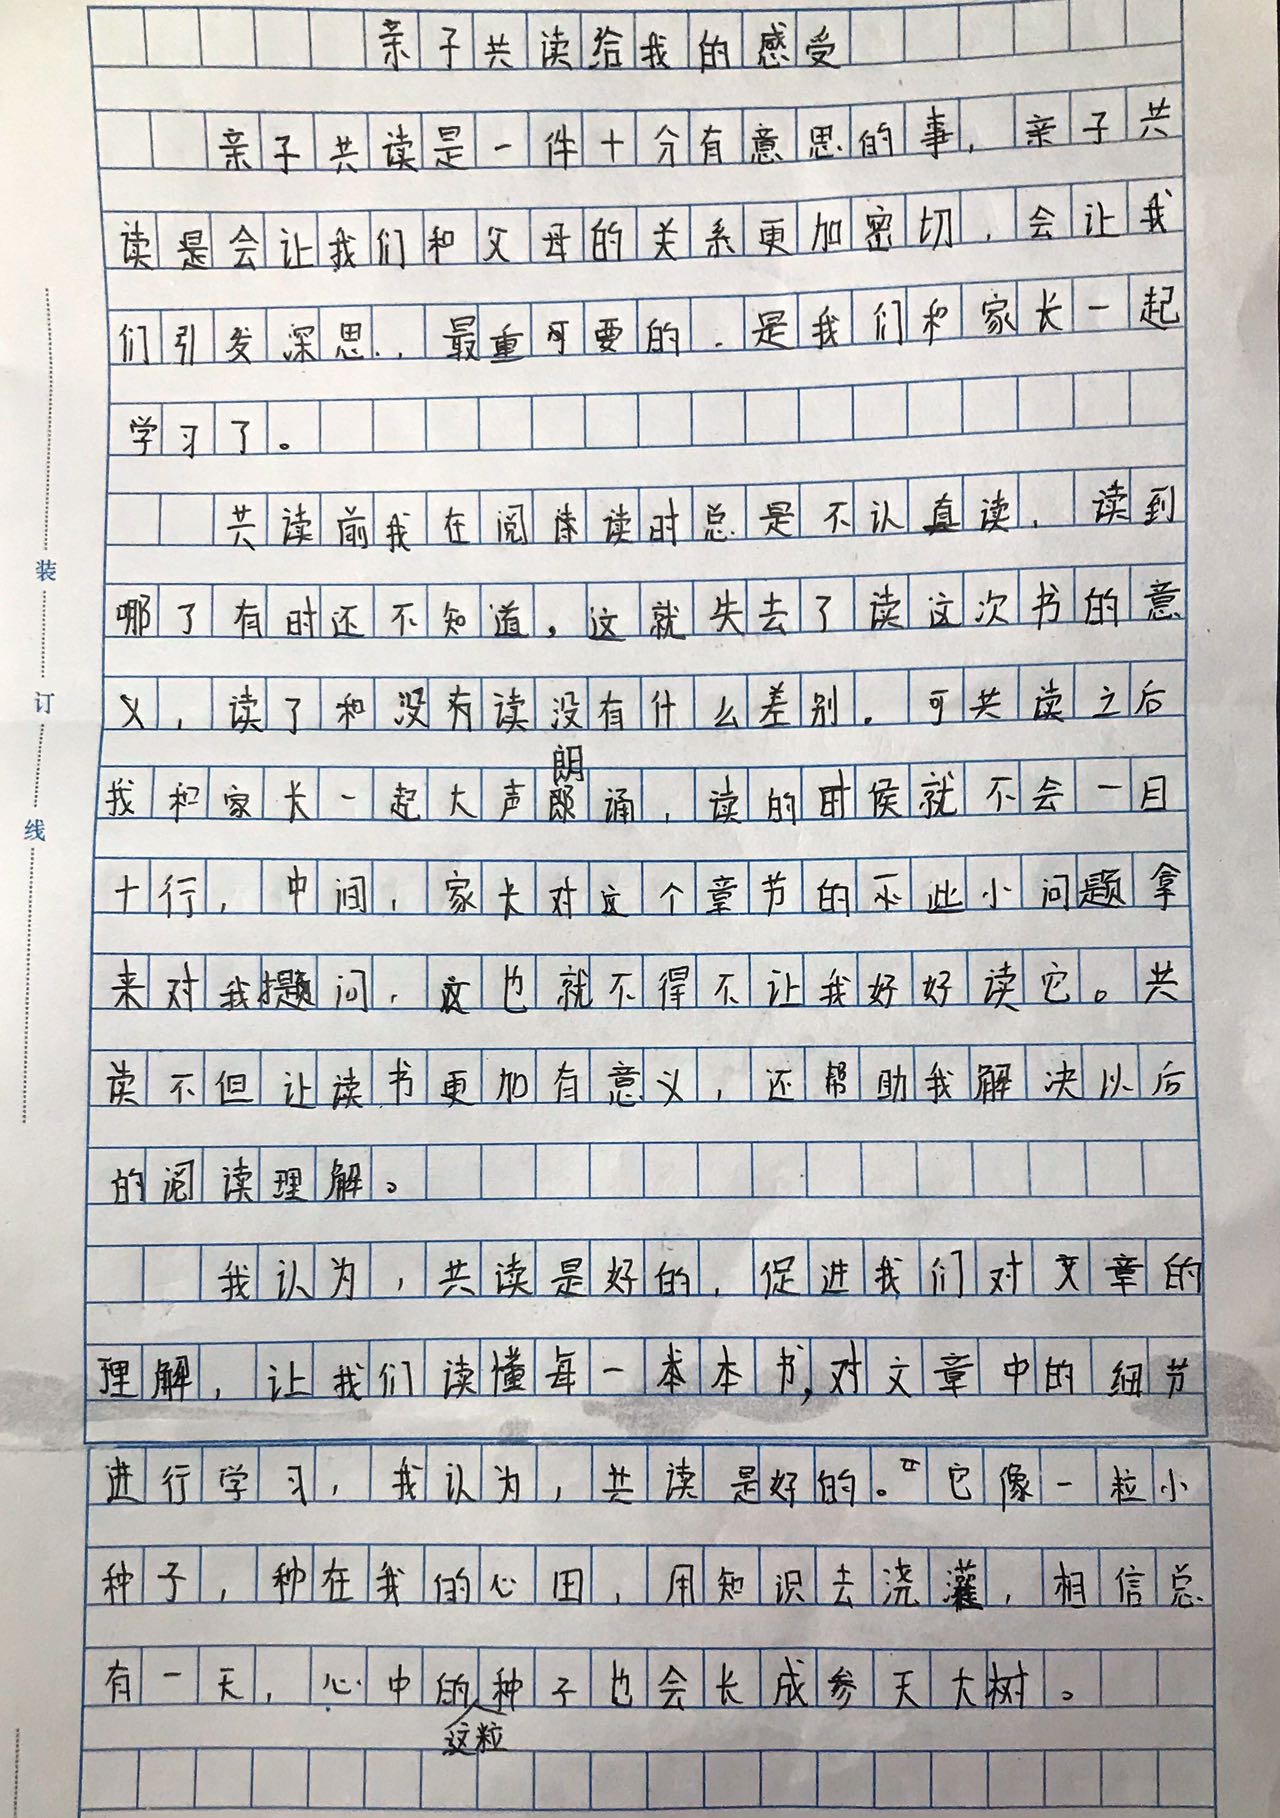 亲子共读给我的感受
亲子共读是一件十分有意思的事，亲子共
读是会让我们和父母的关系更加密切，会让我
们引发深思，最重可要的，是我们和家长一起
学习了。
共读前我在阅读时总是不认真读，读到
哪了有时还不知道，这就失去了读这次书的意
义，读了和没有读没有什么差别。可共读之后
我和家长一起大声朗诵，读的时候就不会一目
十行，中间，家长对这个章节的一些小问题拿
来对我提问，这也就不得不让我好好读它。共
读不但让读书更加有意义，还帮助我解决以后
的阅读理解。
我认为，共读是好的，促进我们对文章的
理解，让我们读懂每一本本书，对文章中的细节
进行学习，我认为，共读是好的。它像一粒小
种子，种在我的心田，用知识去浇灌，相信总
有一天，心中的这粒种子也会长成参天大树。
装
订
线